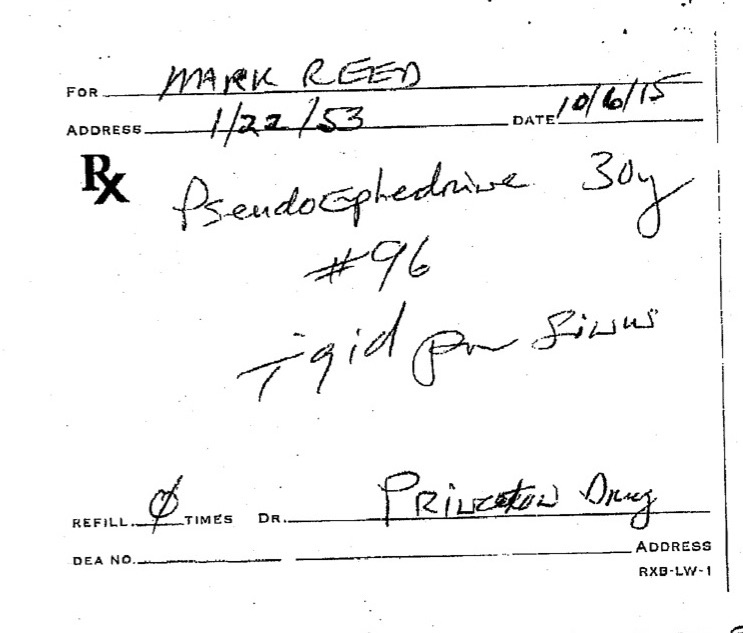 FOR MARK REED
ADDRESS 1/22/53 DATE 10/6/15
Rx Pseudoephedrine 30mg
#96
T qid prn sinus
REFILL Ø TIMES DR. Princeton Drug
DEA NO. ADDRESS
RXB-LW-1